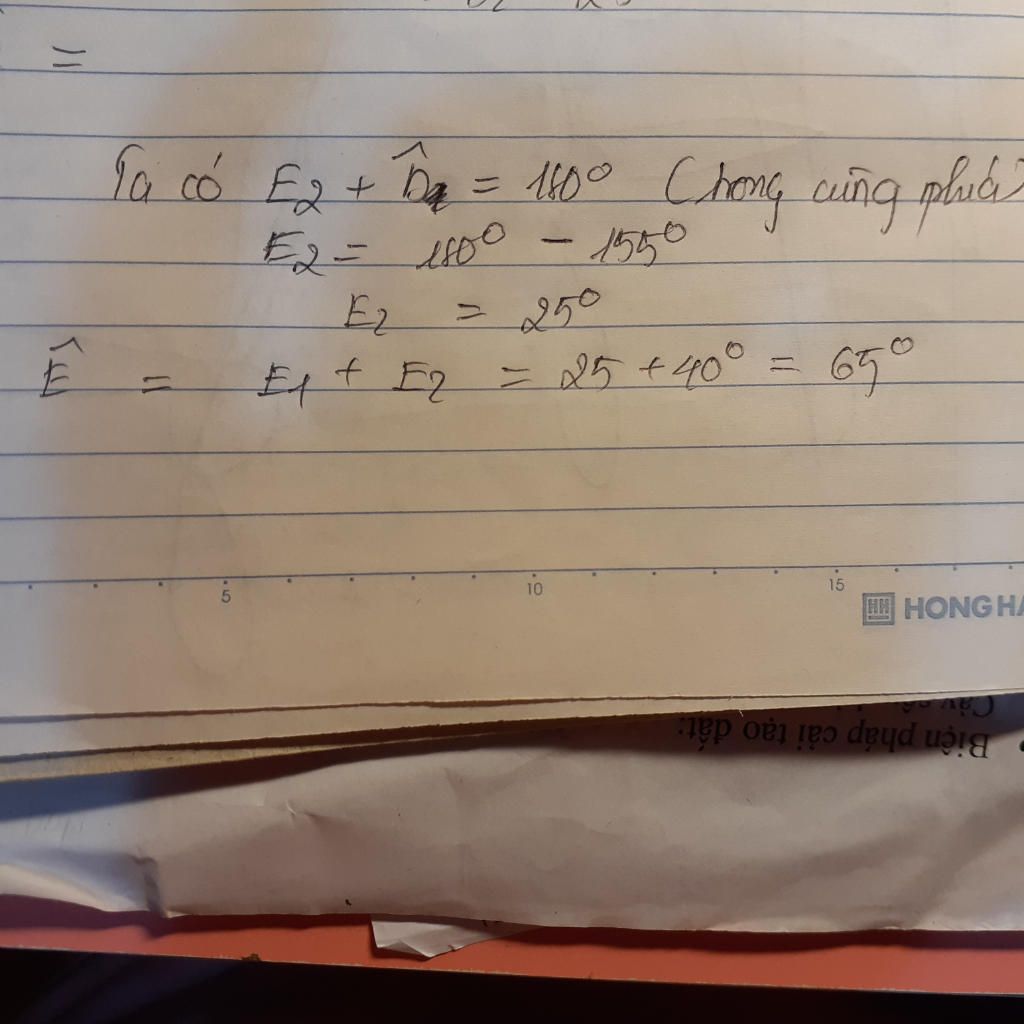 =
Ta có E2 + D̂ = 180° (trong cùng phía)
E2 = 180° - 155°
E2 = 25°
Ê = E1 + E2 = 25 + 40° = 65°
5 10 15
HH HONG HA
Biện pháp cải tạo đất: